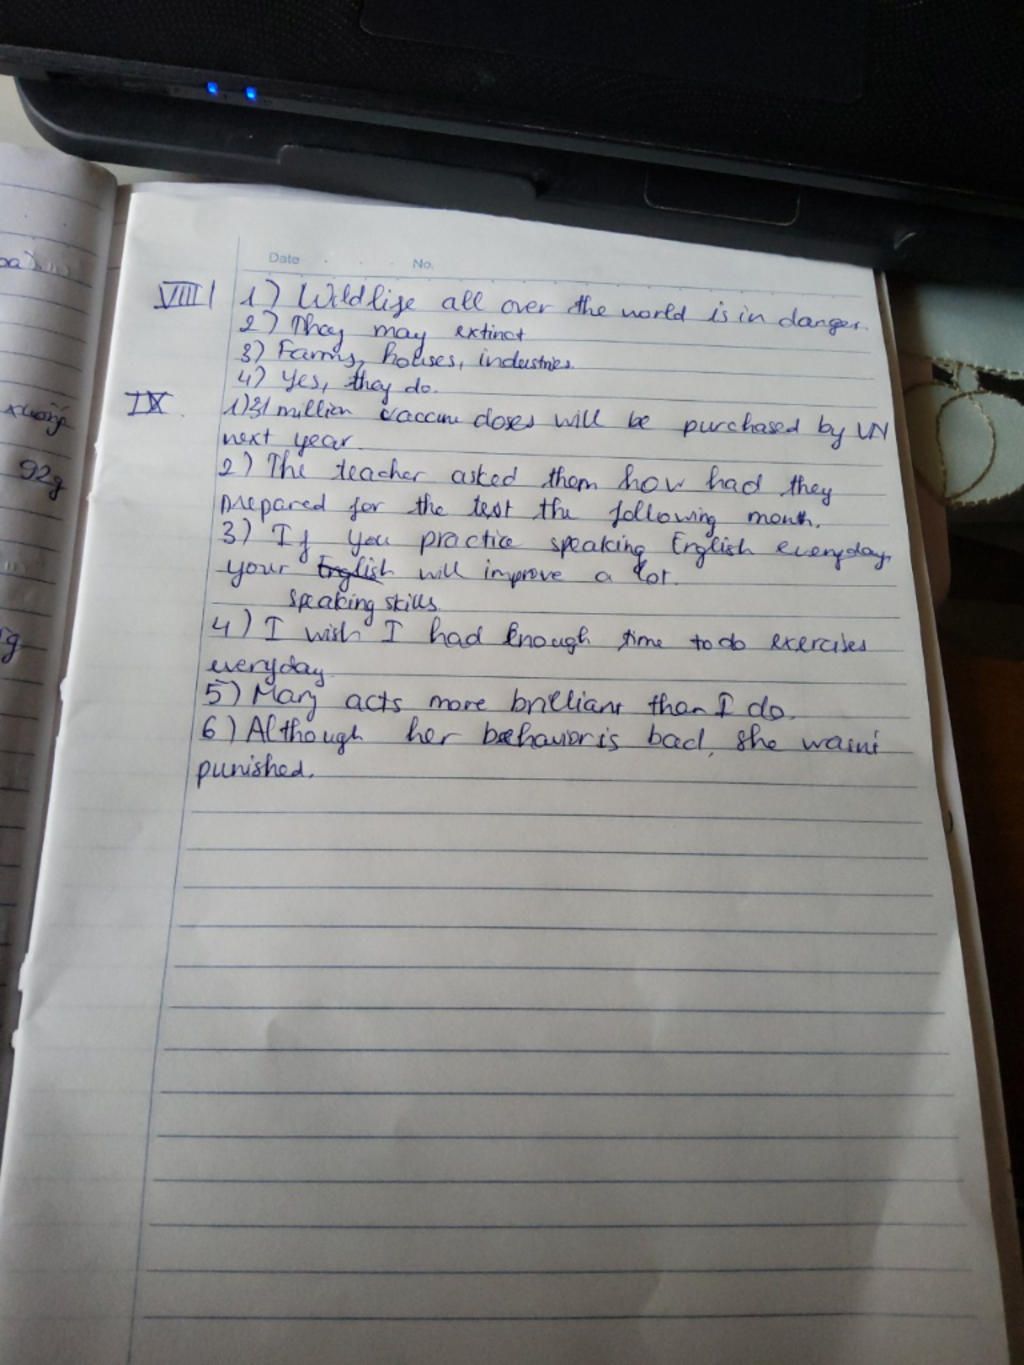 Date . . . No.
VIII 1) Wildlife all over the world is in danger.
2) They may extinct
3) Farms, houses, industries.
4) Yes, they do.
IX. 1) 31 million vaccine doses will be purchased by VN
next year.
2) The teacher asked them how had they
prepared for the test the following month.
3) If you practice speaking English everyday,
your English will improve a lot.
speaking skills
4) I wish I had enough time to do exercises
everyday
5) Mary acts more brilliant than I do.
6) Although her behavior is bad, she wasn't
punished.
92g